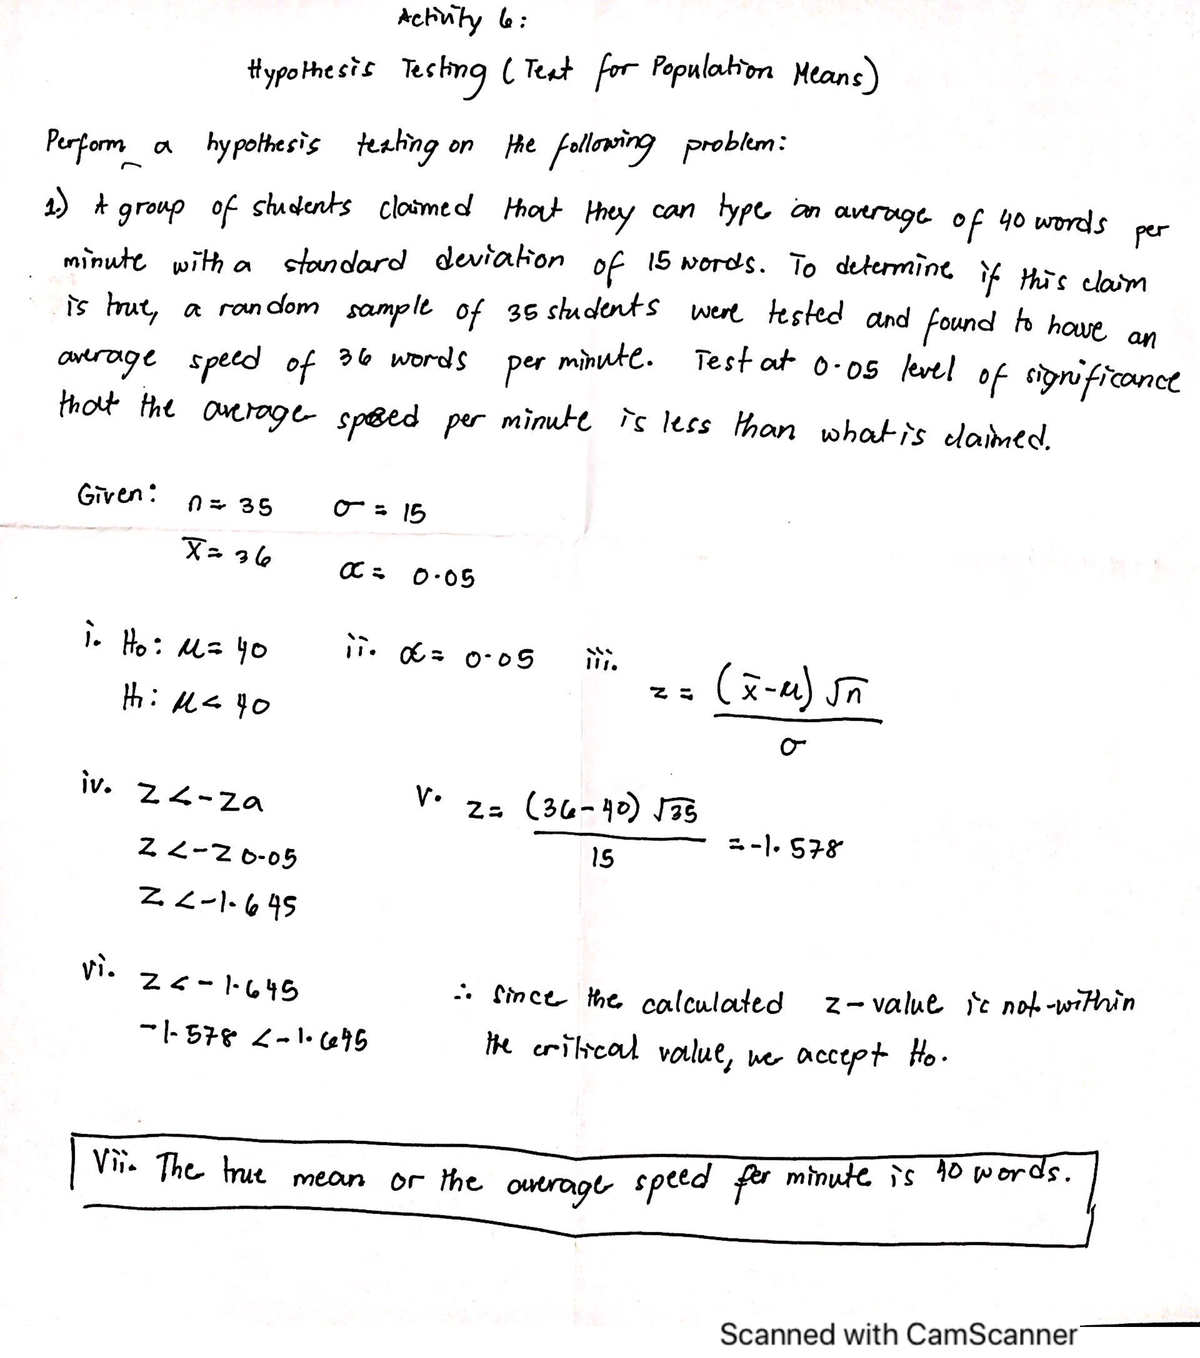 Activity 6:
Hypothesis Testing (Test for Population Means)
Perform a hypothesis testing on the following problem:
1.) A group of students claimed that they can type an average of 40 words per
minute with a standard deviation of 15 words. To determine if this claim
is true, a random sample of 35 students were tested and found to have an
average speed of 36 words per minute. Test at 0.05 level of significance
that the average speed per minute is less than what is claimed.
Given: n = 35 σ = 15
x̄ = 36 α = 0.05
i. Ho: μ = 40 ii. α = 0.05 iii. z = (x̄-μ) √n / σ
H1: μ < 40
iv. z < -zα v. z = (36-40) √35 / 15 = -1.578
z < -z 0.05
z < -1.645
vi. z < -1.645 ∴ Since the calculated z-value is not within
-1.578 < -1.645 the critical value, we accept Ho.
Vii. The true mean or the average speed per minute is 40 words.
Scanned with CamScanner